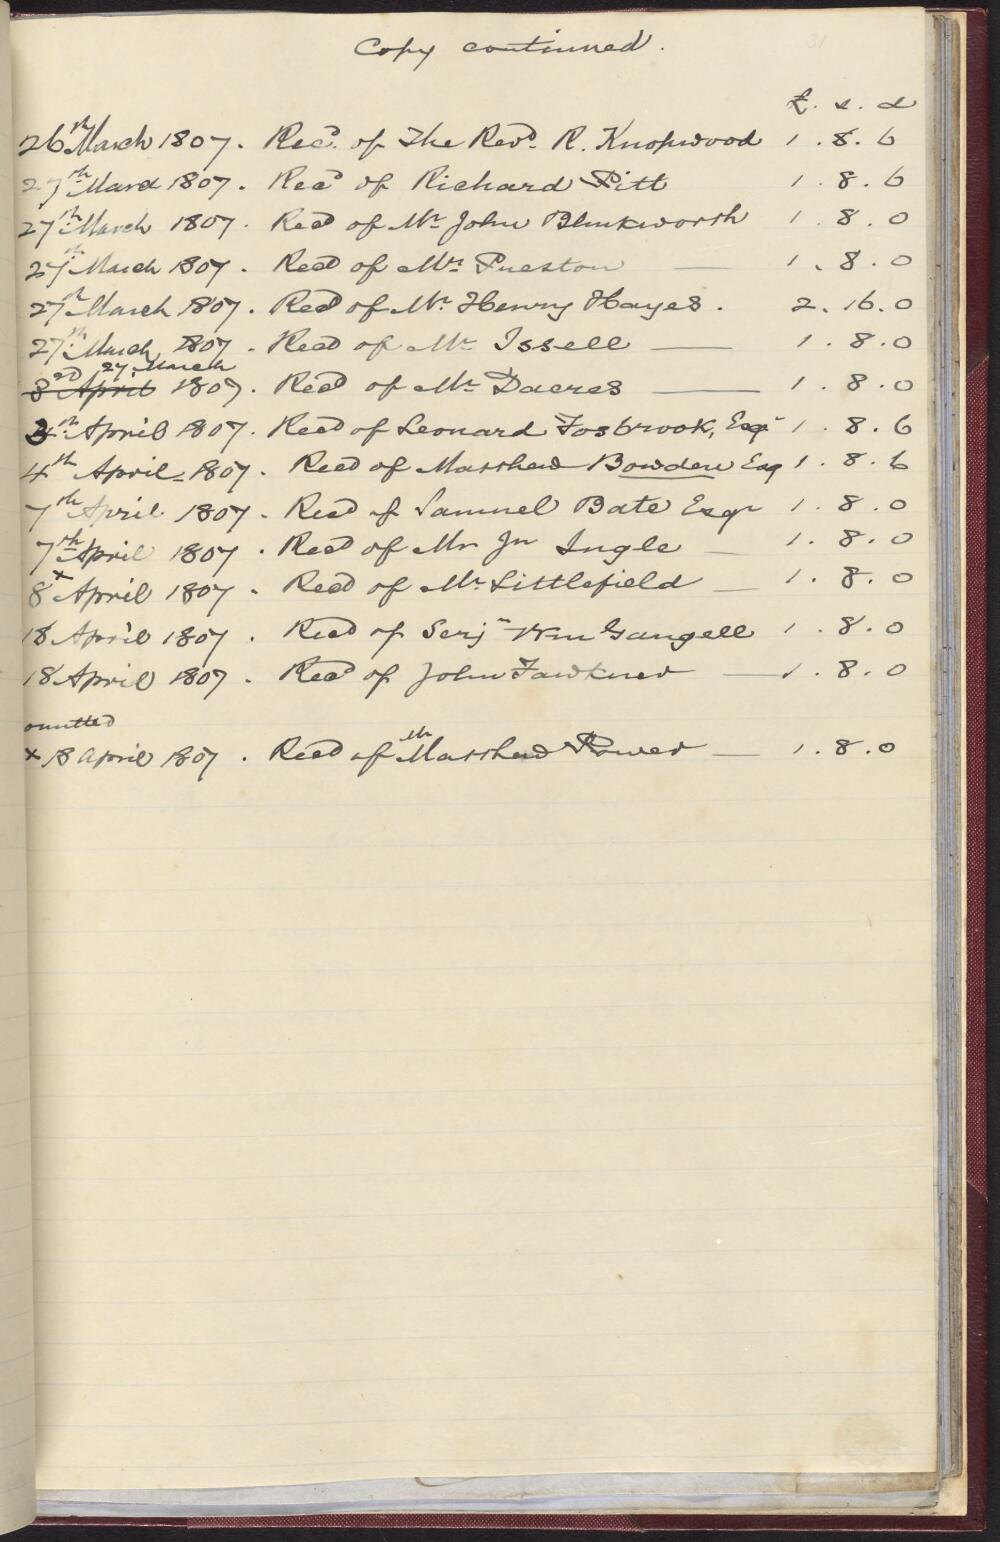 31
Copy continued.
£. s. d
26th March 1807. Recd. of The Revd. R. Knopwood 1. 8. 6
27th March 1807. Recd of Richard Pitt 1. 8. 6
27th March 1807. Recd of Mr John Blinkworth 1. 8. 0
27th March 1807. Recd of Mrs Preston — 1. 8. 0
27th March 1807. Recd of Mr. Henry Hayes. 2. 16. 0
27th March 1807. Recd of Mr Issell — 1. 8. 0
27 March
3rd April 1807. Recd of Mr Dacres — 1. 8. 0
3th April 1807. Recd of Leonard Fosbrook, Esqr 1. 8. 6
4th April 1807. Recd of Matthew Bowden Esq 1. 8. 6
7th April 1807. Recd of Samuel Bate Esqr 1. 8. 0
7th April 1807. Recd of Mr Jn Ingle — 1. 8. 0
8x April 1807. Recd of Mr Littlefield — 1. 8. 0
18 April 1807. Recd of Serjt Wm Gangell 1. 8. 0
18 April 1807. Recd of John Fawkner — 1. 8. 0
omitted
x 18 April 1807. Recd of Matthew Power — 1. 8. 0